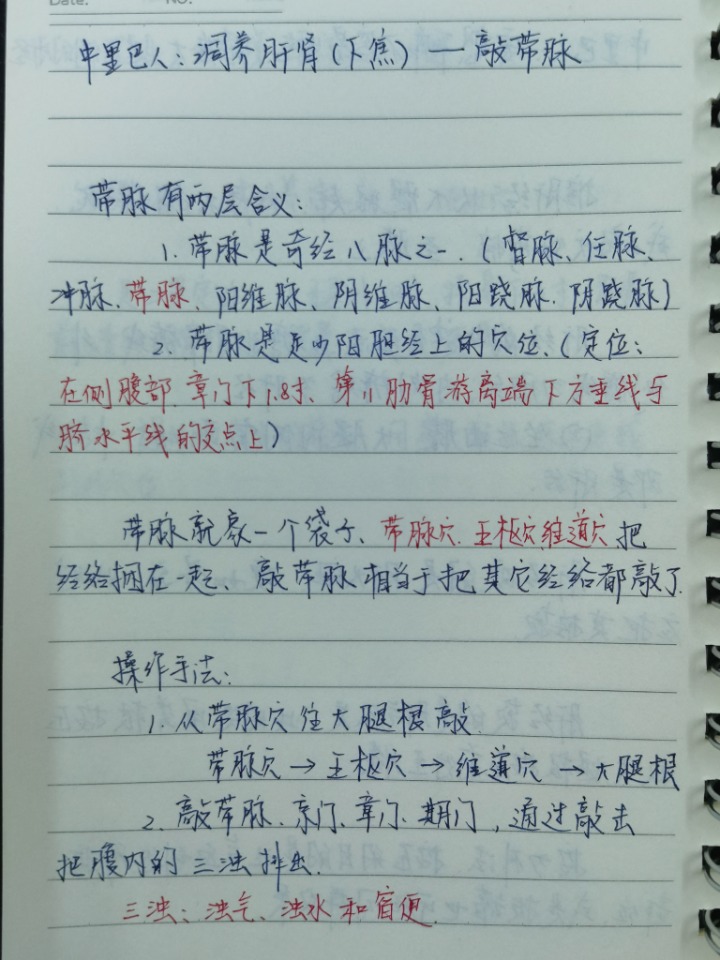 Date:
NO.
中里巴人:调养肝肾(下焦)——敲带脉
带脉有两层含义:
1.带脉是奇经八脉之一.(督脉、任脉、
冲脉、带脉、阳维脉、阴维脉、阳跷脉、阴跷脉)
2.带脉是足少阳胆经上的穴位、(定位:
在侧腹部、章门下1.8寸、第11肋骨游离端下方垂线与
脐水平线的交点上)
带脉就象一个袋子、带脉穴、五枢穴、维道穴、把
经络捆在一起、敲带脉相当于把其它经络都敲了.
操作手法:
1.从带脉穴往大腿根敲.
带脉穴→五枢穴→维道穴→大腿根
2.敲带脉、京门、章门、期门,通过敲击
把腹内的三浊抖出.
三浊:浊气、浊水和宿便.